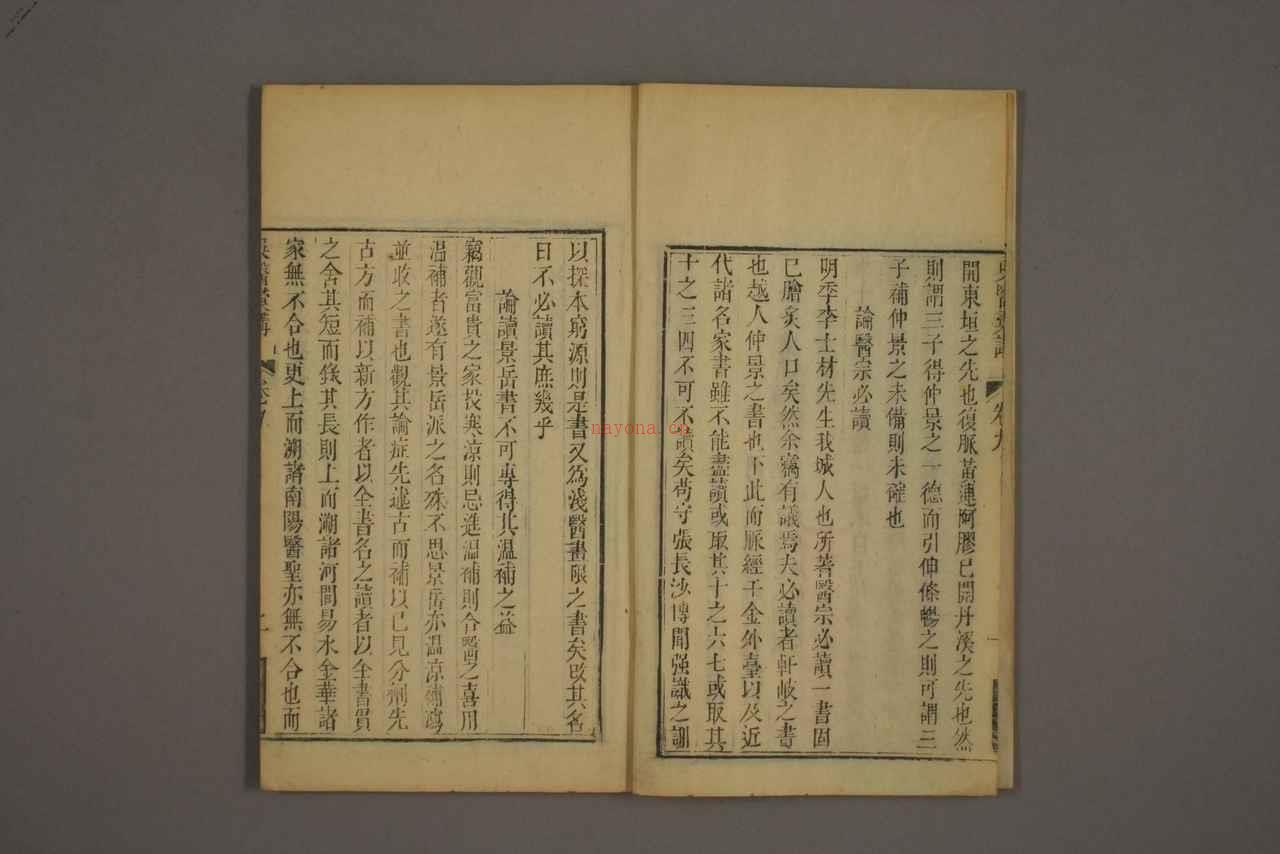 開東垣之先也復脈黃連阿膠已開丹溪之先也然
則謂三子得仲景之一德而引伸條暢之則可謂三
子補仲景之未備則未確也
論醫宗必讀
明季李士材先生我城人也所著醫宗必讀一書固
已膾炙人口矣然余竊有議焉夫必讀者軒岐之書
也越人仲景之書也下此而脈經千金外臺以及近
代諸名家書雖不能盡讀或取其十之六七或取其
十之三四不可不讀矣苟守張長沙博聞强識之訓
卷九
以探本窮源則是書又為淺醫畫限之書矣改其名
曰不必讀其庶幾乎
論讀景岳書不可專得其溫補之益
竊觀富貴之家投寒涼則忌進溫補則合醫之喜用
温補者遂有景岳派之名殊不思景岳亦温涼補瀉
並收之書也觀其論症先述古而補以己見分劑先
古方而補以新方作者以全書名之讀者以全書貫
之舍其短而錄其長則上而溯諸河間易水金華諸
家無不合也更上而溯諸南陽醫聖亦無不合也而
nayona.cn